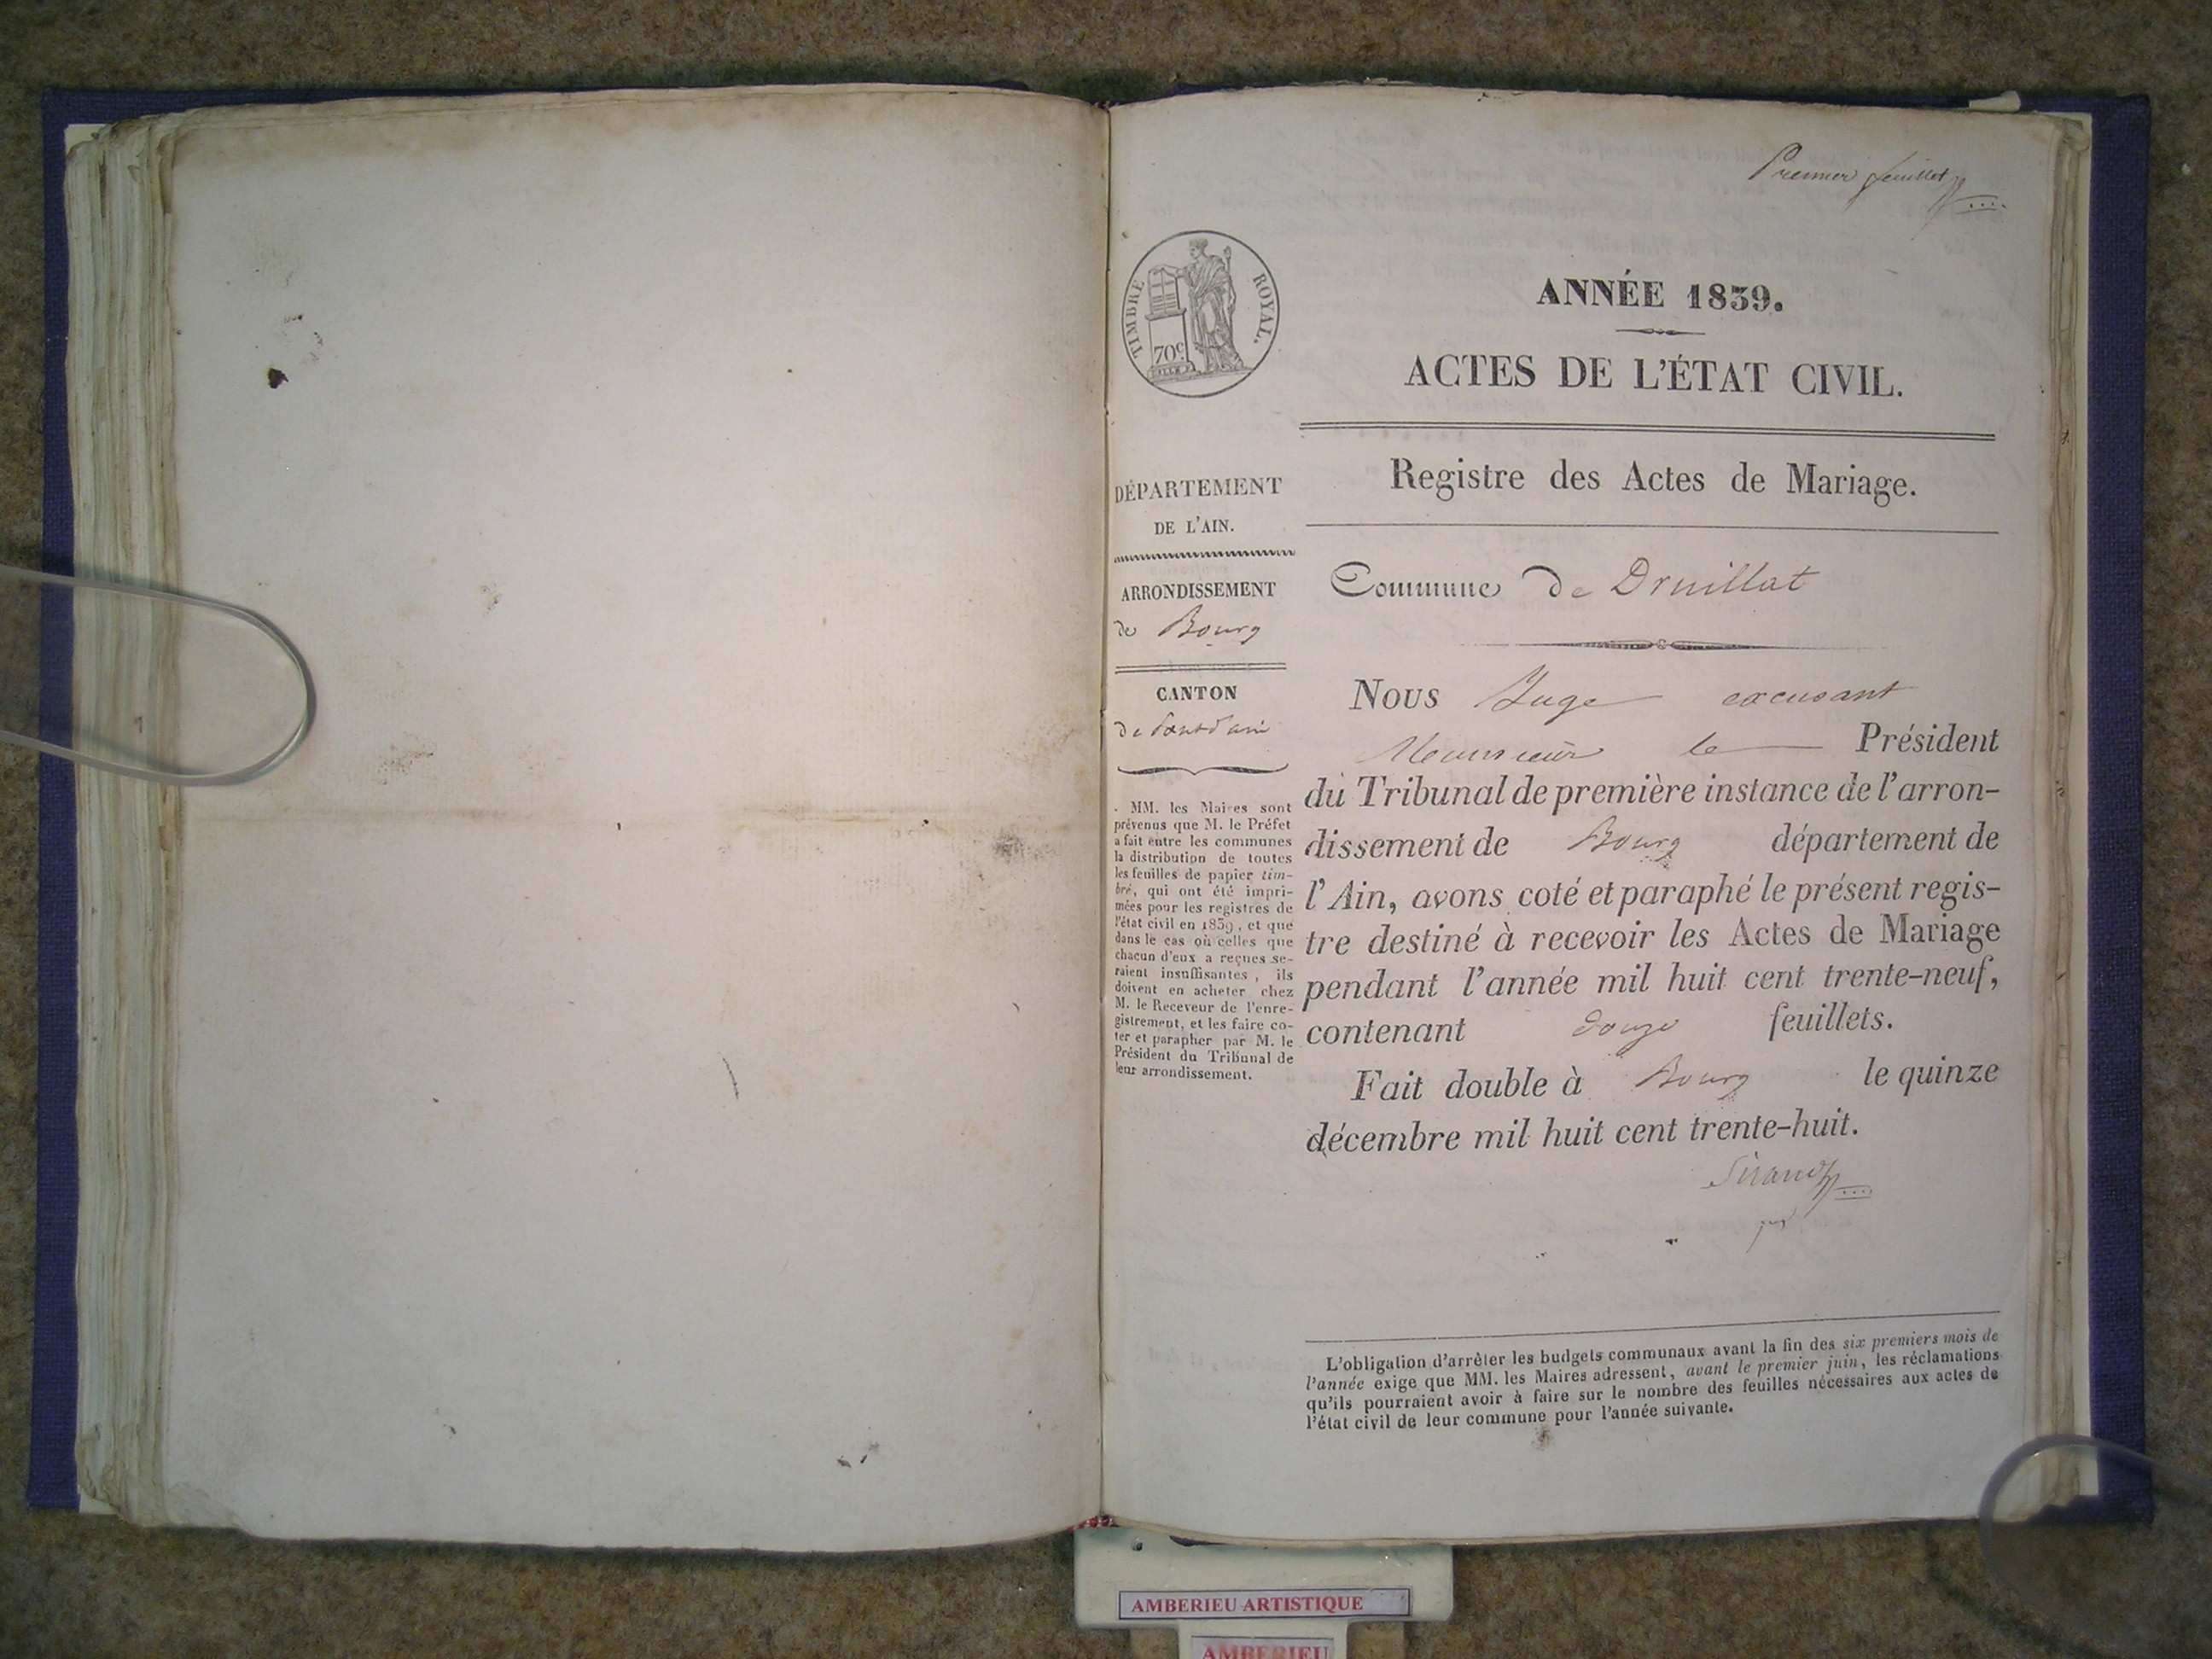 Premier feuillet
TIMBRE ROYAL.
70c
ANNÉE 1839.
ACTES DE L'ÉTAT CIVIL.
Registre des Actes de Mariage.
DÉPARTEMENT
DE L'AIN.
ARRONDISSEMENT
de Bourg
CANTON
de Pont d'ain
. MM. les Maires sont
prévenus que M. le Préfet
a fait entre les communes
la distribution de toutes
les feuilles de papier tim-
bré, qui ont été impri-
mées pour les registres de
l'état civil en 1839, et que
dans le cas où celles que
chacun d'eux a reçues se-
raient insuffisantes, ils
doivent en acheter chez
M. le Receveur de l'enre-
gistrement, et les faire co-
ter et parapher par M. le
Président du Tribunal de
leur arrondissement.
Commune de Druillat
Nous Juge excusant
Monsieur le Président
du Tribunal de première instance de l'arron-
dissement de Bourg département de
l'Ain, avons coté et paraphé le présent regis-
tre destiné à recevoir les Actes de Mariage
pendant l'année mil huit cent trente-neuf,
contenant douze feuillets.
Fait double à Bourg le quinze
décembre mil huit cent trente-huit.
Sirand
L'obligation d'arrêter les budgets communaux avant la fin des six premiers mois de
l'année exige que MM. les Maires adressent, avant le premier juin, les réclamations
qu'ils pourraient avoir à faire sur le nombre des feuilles nécessaires aux actes de
l'état civil de leur commune pour l'année suivante.
AMBERIEU ARTISTIQUE
AMBERIEU